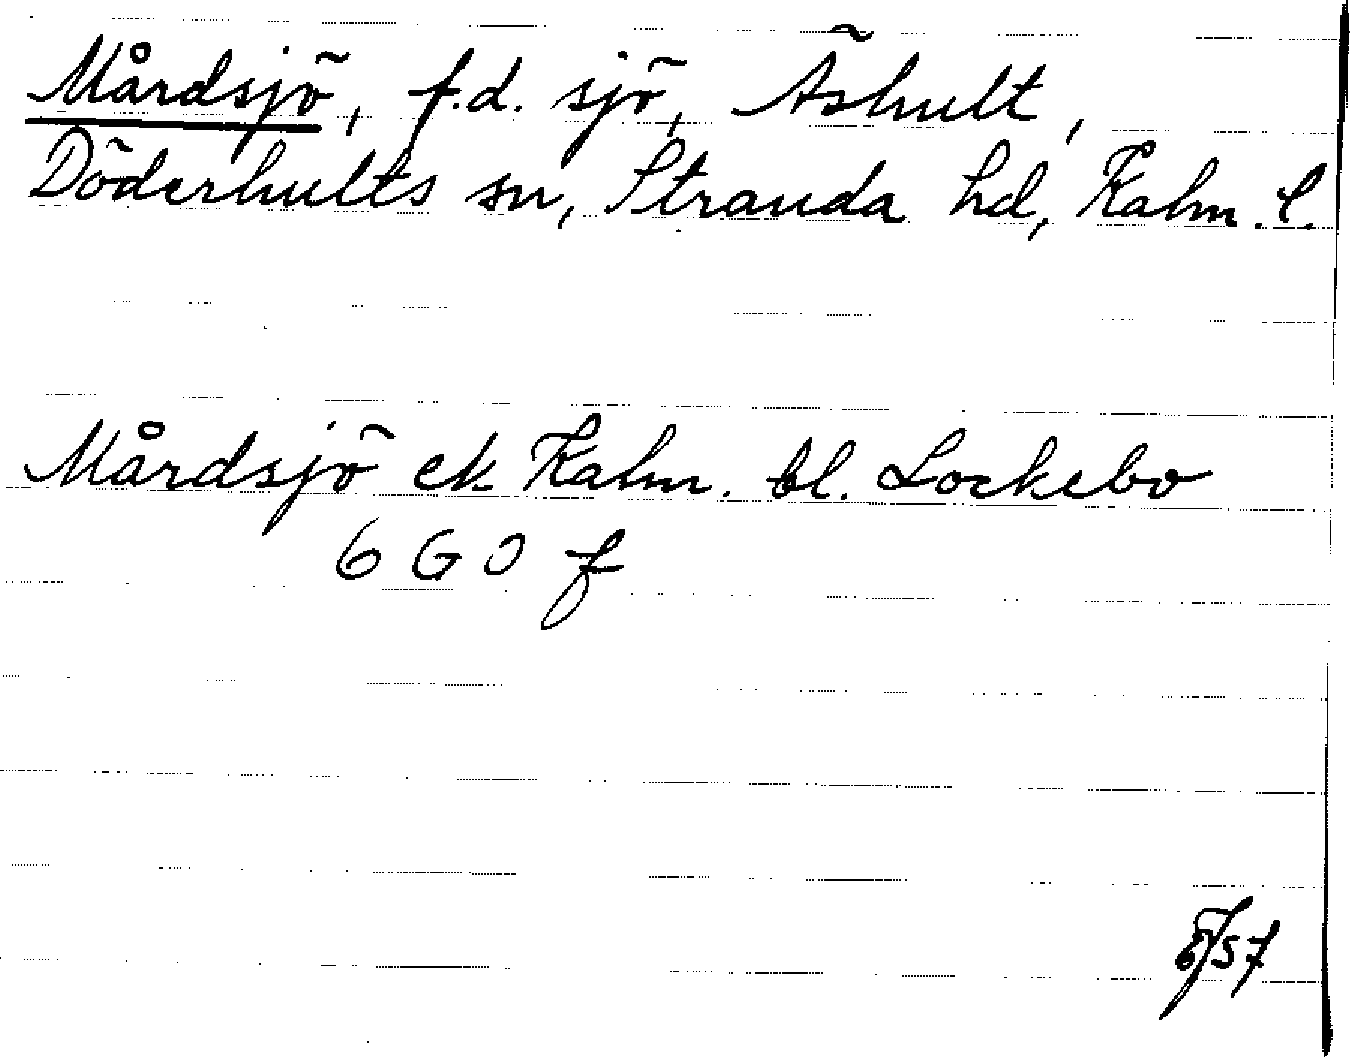 Mårdsjö, f.d. sjö, Äshult,
Döderhults sn, Stranda hd, Kalm. l.
Mårdsjö ek Kalm. bl. Lockebo
6 G 0 f
6/57